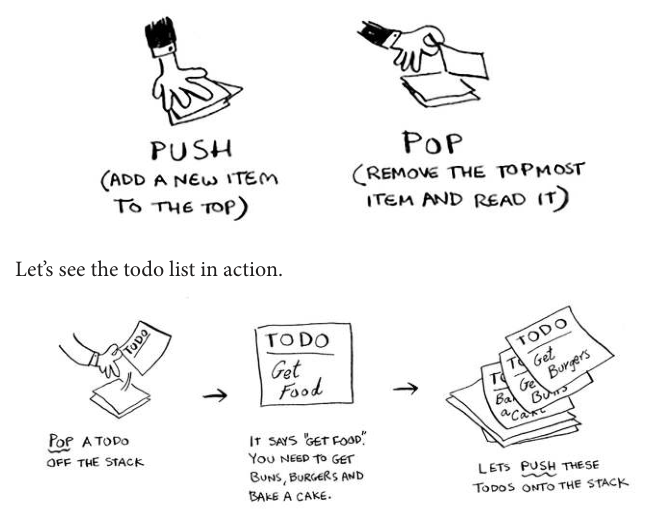 PUSH
(ADD A NEW ITEM
TO THE TOP)
POP
(REMOVE THE TOPMOST
ITEM AND READ IT)
Let's see the todo list in action.
TODO
POP A TODO
OFF THE STACK
TODO
Get
Food
IT SAYS "GET FOOD".
YOU NEED TO GET
BUNS, BURGERS AND
BAKE A CAKE.
TODO
Get
Burgers
T
Ge
Buns
TO
Ba
a Cake
LETS PUSH THESE
TODOS ONTO THE STACK